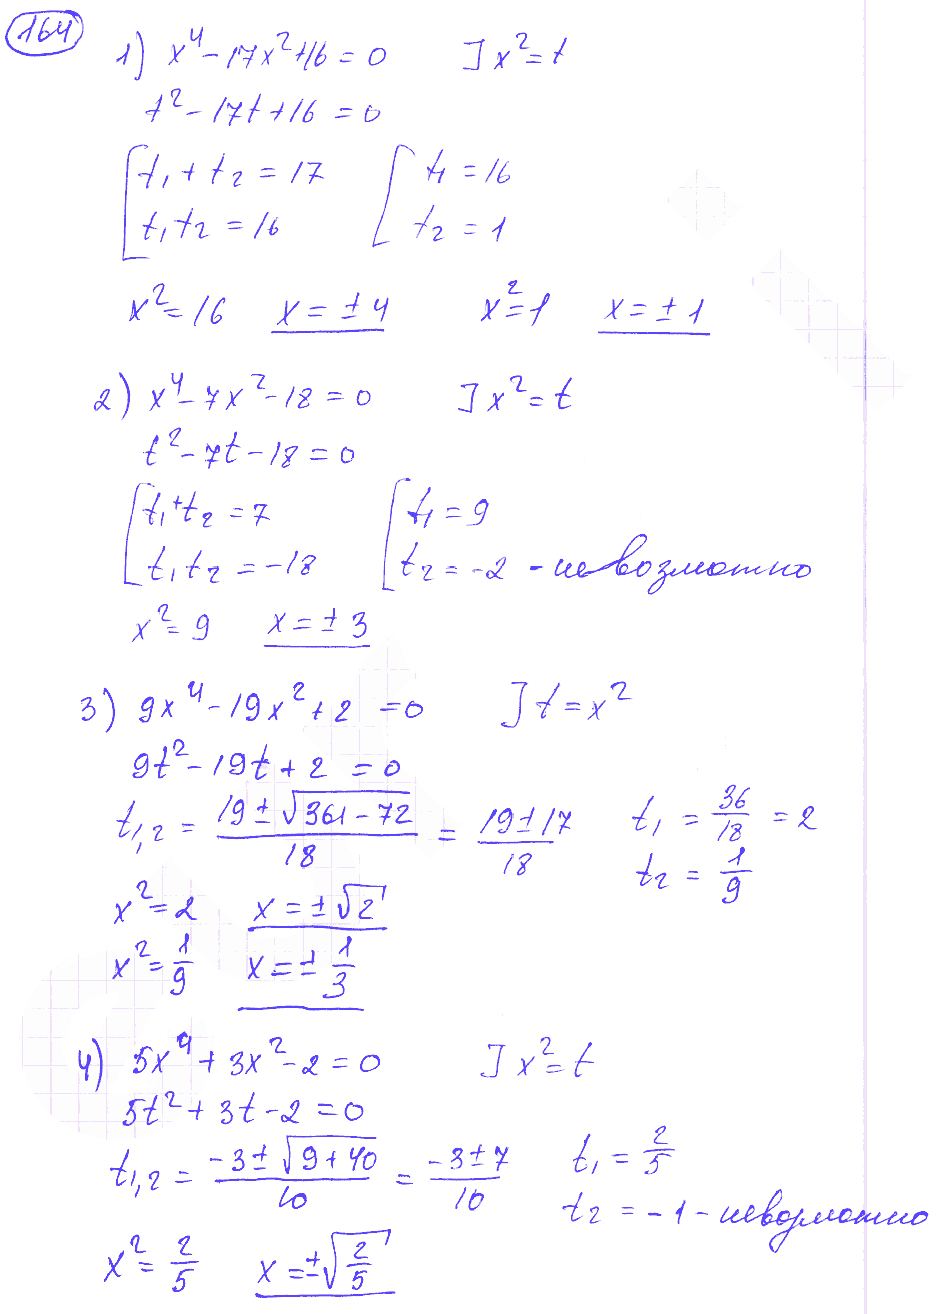 164
1) x⁴ - 17x² + 16 = 0   ] x² = t
t² - 17t + 16 = 0
[ t₁ + t₂ = 17   [ t₁ = 16
t₁t₂ = 16   t₂ = 1
x² = 16   x = ± 4   x² = 1   x = ± 1
2) x⁴ - 7x² - 18 = 0   ] x² = t
t² - 7t - 18 = 0
[ t₁ + t₂ = 7   [ t₁ = 9
t₁t₂ = -18   t₂ = -2 - невозможно
x² = 9   x = ± 3
3) 9x⁴ - 19x² + 2 = 0   ] t = x²
9t² - 19t + 2 = 0
t₁,₂ = (19 ± √(361 - 72))/18 = (19 ± 17)/18   t₁ = 36/18 = 2
t₂ = 1/9
x² = 2   x = ± √2
x² = 1/9   x = ± 1/3
4) 5x⁴ + 3x² - 2 = 0   ] x² = t
5t² + 3t - 2 = 0
t₁,₂ = (-3 ± √(9 + 40))/10 = (-3 ± 7)/10   t₁ = 2/5
t₂ = -1 - невозможно
x² = 2/5   x = ± √(2/5)